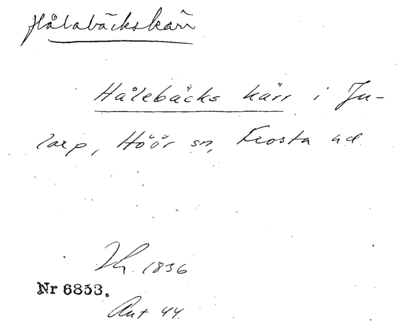 Hålabäckskärr
Hålebäcks kärr i Ju-
larp, Höör sn, Frosta hd
Nr 6853.
Ant 44.